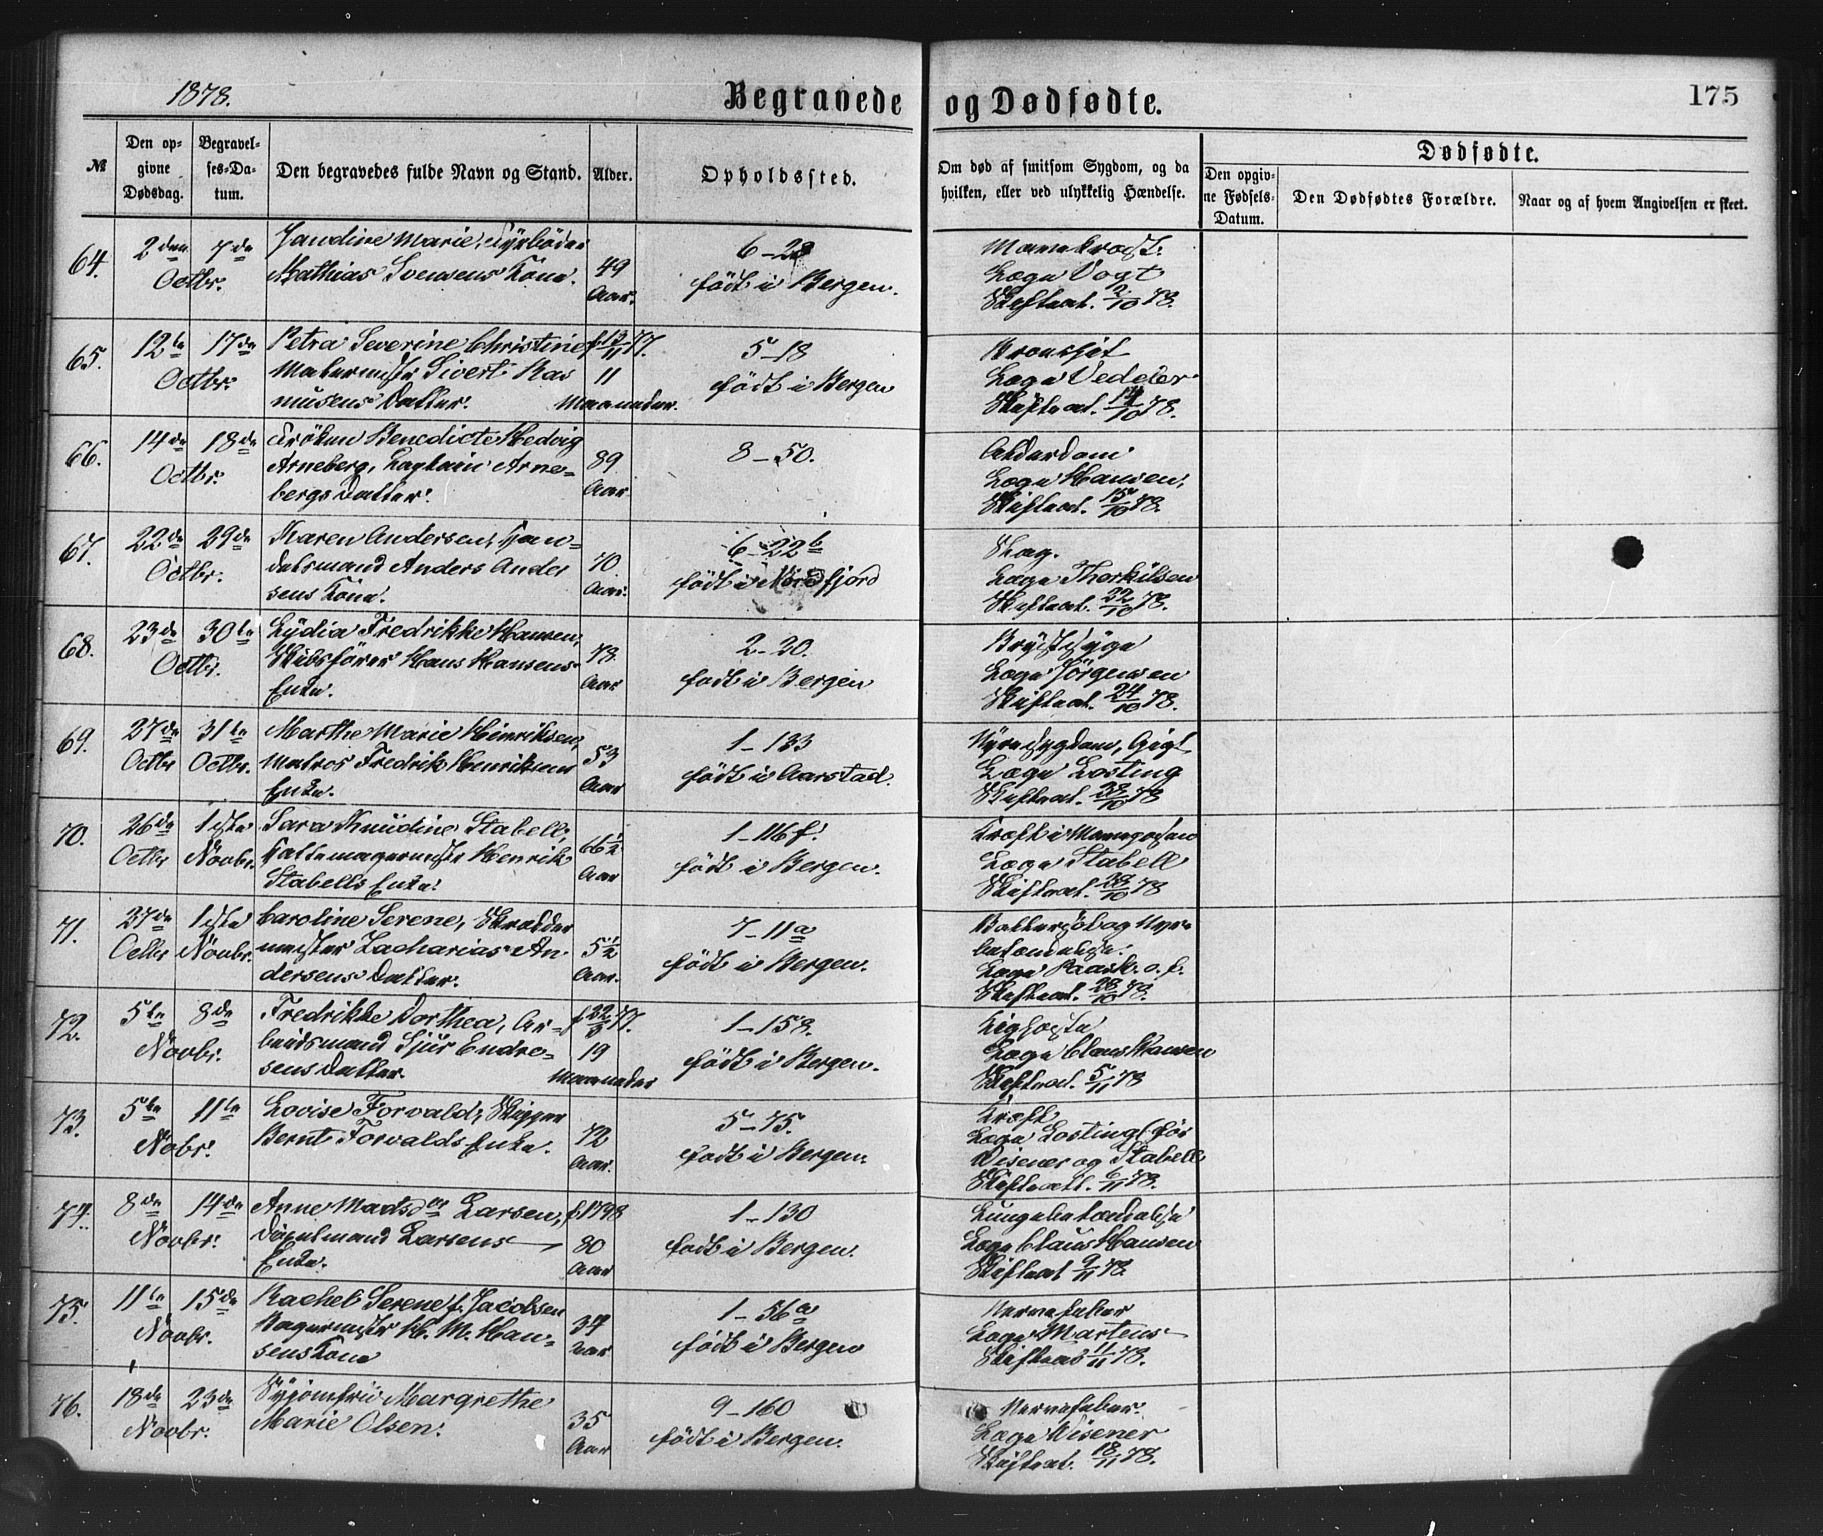 1878.
Begravede og Dødfødte.
175
№
Den opgivne Dødsdag.
Begravelses-Datum.
Den begravedes fulde Navn og Stand.
Alder.
Opholdssted.
Om død af smitsom Sygdom, og da hvilken, eller ved ulykkelig Hændelse.
Dødfødte.
Den opgivne Fødsels-Datum.
Den Dødfødtes Forældre.
Naar og af hvem Angivelsen er skeet.
64. 2den 7de Octbr.
Jandine Marie, Fyrbøder
Mathias Svensens Kone.
49 Aar.
6-28
født i Bergen.
Mavekræft.
Læge Vogt
Skifteat. 2/10 78.
65. 12te 17de Octbr.
Petra Severine Christine
Malermester Sivert Ras
musens Datter.
f 13/11 77.
11 Maaneder.
5-18
født i Bergen
Læge Vedeler
Skifteat. 14/10 78.
66. 14de 18de Octbr.
Frøken Benedicte Hedvig
Arneberg, Captain Arne-
bergs Datter.
89 Aar.
8-50.
Alderdom
Læge Hansen,
Skifteat. 15/10 78.
67. 22de 29de Octbr.
Karen Andersen, Han-
delsmand Anders Ander
sens Kone.
70 Aar.
6-22b
født i Nordfjord
Slag.
Læge Thorkilsen
Skifteat. 22/10 78.
68. 23de 30te Octbr.
Lydia Fredrikke Hansen,
Skibsfører Hans Hansens
Enke.
78. Aar
2-30.
født i Bergen
Brystsyge
Læge Jörgensen
Skifteat. 24/10 78.
69. 27de Octbr 31te Octbr.
Marthe Marie Henriksen,
Matros Fredrik Henriksens
Enke.
53 Aar
1-133
født i Aarstad.
Nyresygdom, Gigt
Læge Losting
Skifteat. 28/10 78
70. 26de Octbr 1ste Novbr.
Sara Knudine Stabell,
Hattemagermester Henrik
Stabells Enke.
66 1/2 Aar
1-116f.
født i Bergen.
Kræft i Mavegaden
Læge Stabell
Skifteat. 28/10 78
71. 27de Octbr 1ste Novbr.
Caroline Serene, Skrædder
mester Zacharias An-
dersens Datter.
5 1/2 Aar.
7-11a
født i Bergen.
betændelse.
Læge Paask. o. f.
Skifteat. 28/10 78.
72. 5te 8de Novbr.
Fredrikke Dorthea, Ar-
beidsmand Sjur Endre-
sens Datter.
77.
19 Maaneder
1-158.
født i Bergen.
Kighoste
Læge Claus Hansen
Skifteat. 5/11 78
73. 5te 11te Nobr.
Lovise Forvald, Skipper
Bernt Forvalds Enke.
72 Aar.
5-75.
født i Bergen.
Kræft
Læge Losting (før
Wisener og Stabell
Skifteatt. 6/11 78.
74. 8de 14de Novbr.
Anne Madsdtr Larsen,
Larsens
Enke.
f. 1798
80 Aar
1-130
født i Bergen.
Lungebetændelse
Læge Claus Hansen
Skifteat 9/11 78.
75. 11te 15de Novbr.
Rachel Serene f. Jacobsen
Bagermester H. M. Han-
sens Kone
37 Aar
1-56a
født i Bergen
Nervefeber
Læge Martens
Skifteat 11/11 78.
76. 18de 23de Novbr.
Syjomfru Margrethe
Marie Olsen.
35 Aar
9-160
født i Bergen.
Nervefeber.
Læge Wisener
Skifteat. 18/11 78.